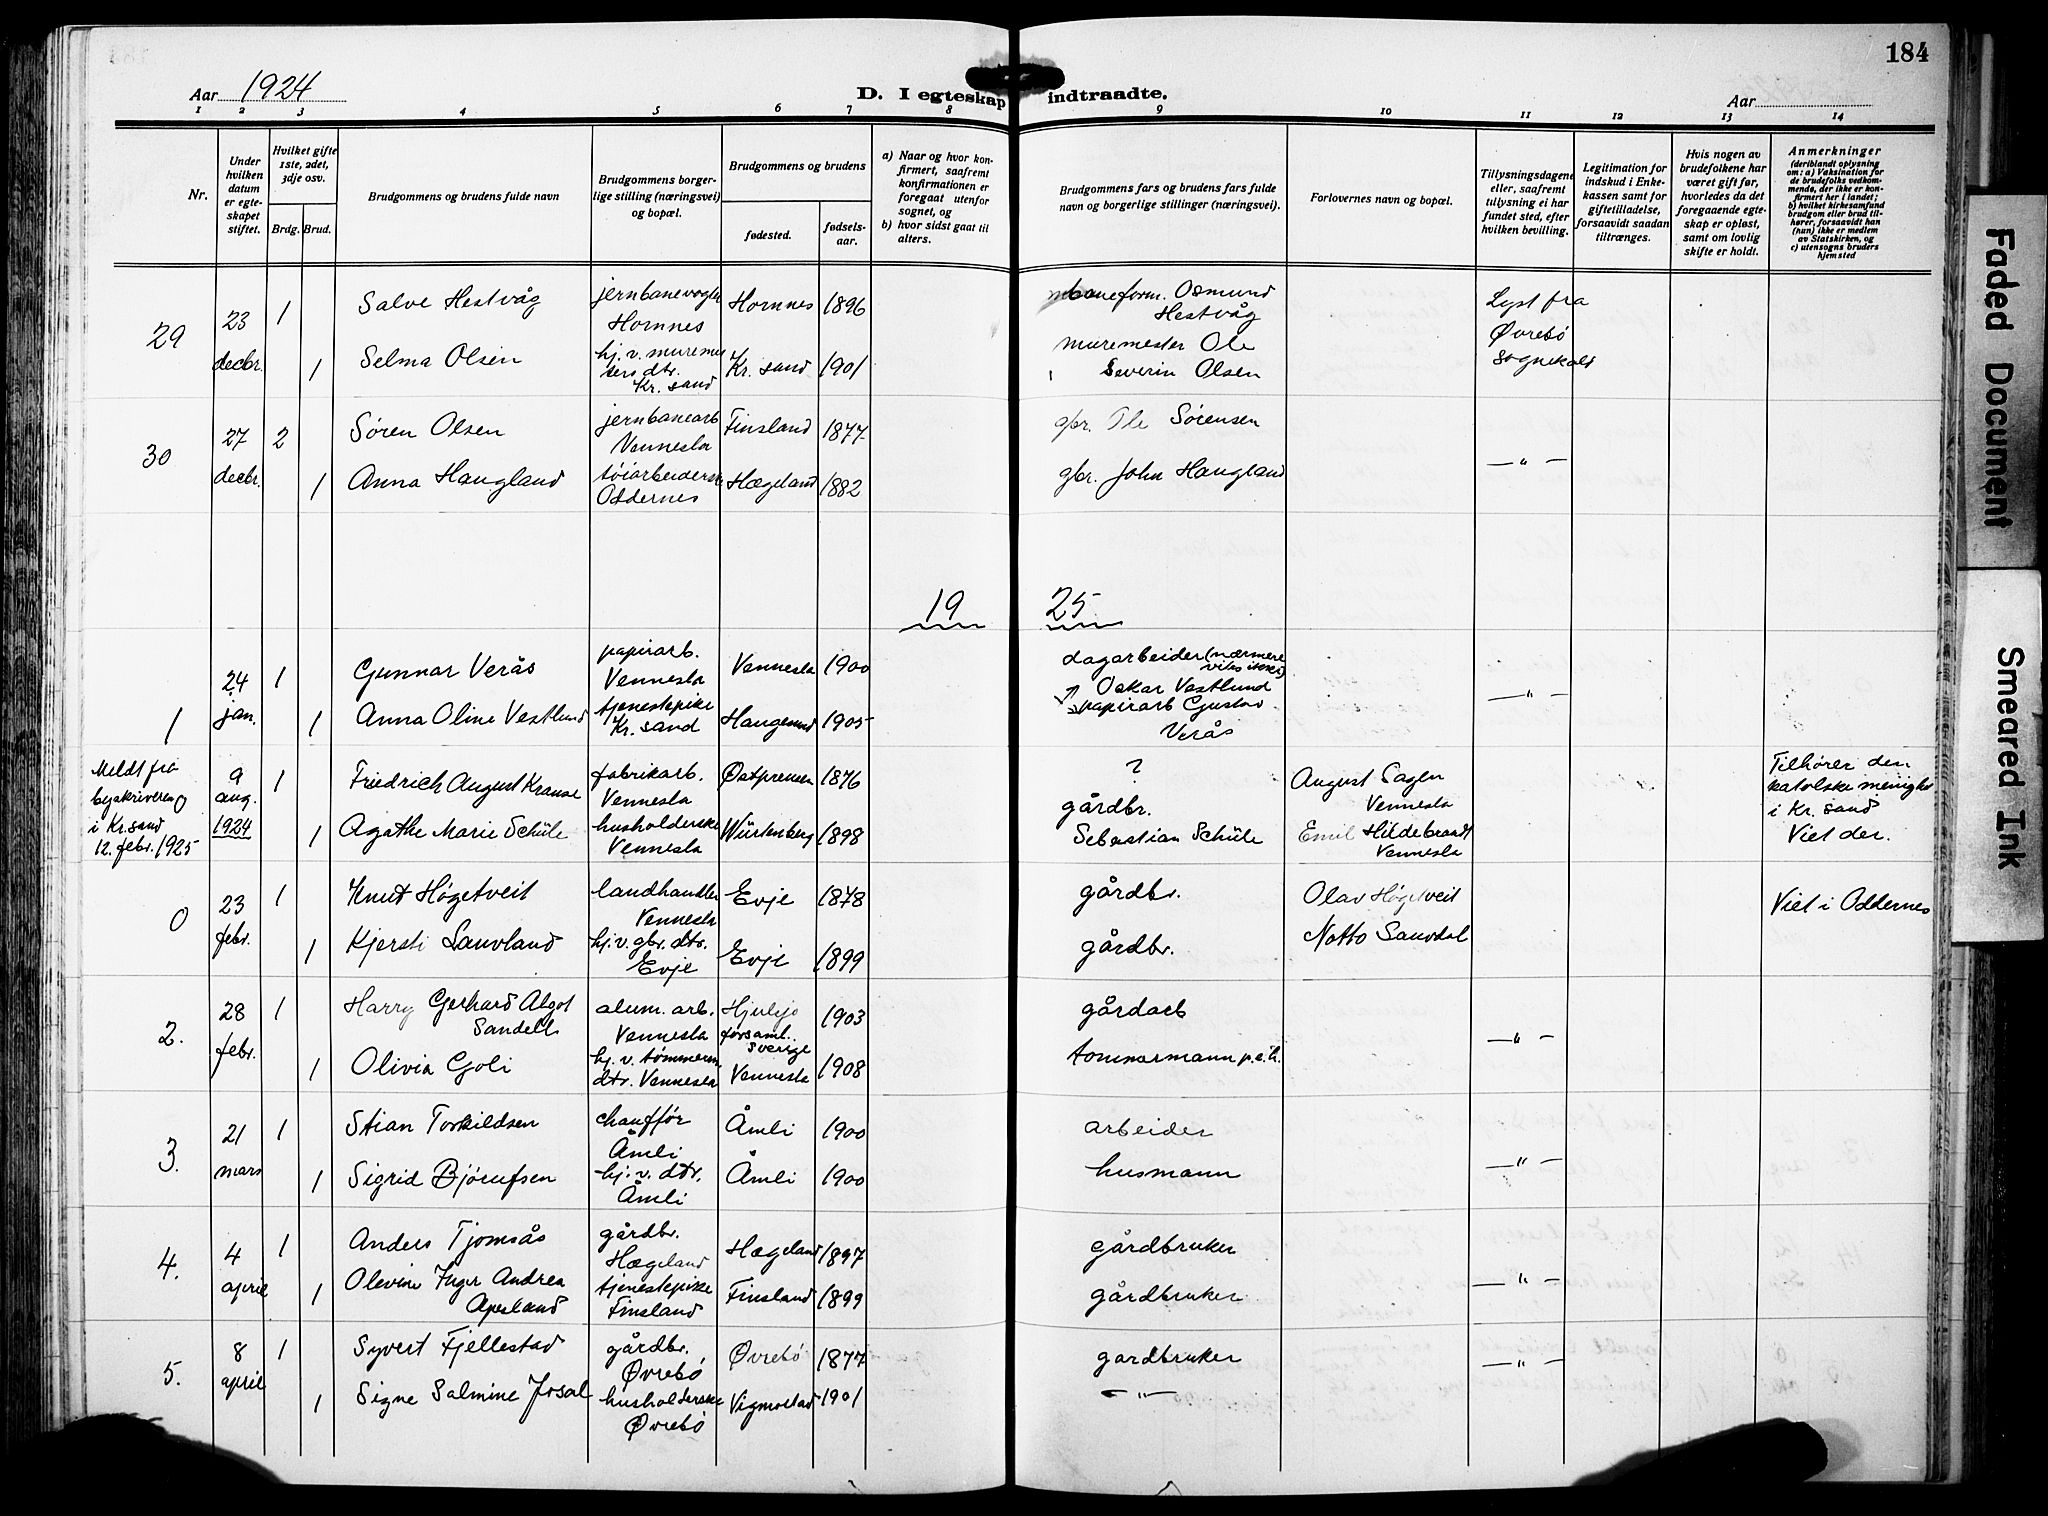 184
Aar 1924
D. I egteskap indtraadte.
Aar
1 2 3 4 5 6 7 8 9 10 11 12 13 14
Nr.
Under hvilken datum er egteskapet stiftet.
Hvilket gifte 1ste, 2det, 3dje osv.
Brdg. Brud.
Brudgommens og brudens fulde navn
Brudgommens borgerlige stilling (næringsvei) og bopæl.
Brudgommens og brudens
fødested.
fødselsaar.
a) Naar og hvor konfirmert, saafremt konfirmationen er foregaat utenfor sognet, og
b) hvor sidst gaat til alters.
Brudgommens fars og brudens fars fulde navn og borgerlige stillinger (næringsvei).
Forlovernes navn og bopæl.
Tillysningsdagene eller, saafremt tillysning ei har fundet sted, efter hvilken bevilling.
Legitimation for indskud i Enkekassen samt for giftetilladelse, forsaavidt saadan tiltrænges.
Hvis nogen av brudefolkene har været gift før, hvorledes da det foregaaende egteskap er opløst, samt om lovlig skifte er holdt.
Anmerkninger
(deriblandt oplysning om: a) Vaksination for de brudefolks vedkommende, der ikke er konfirmert her i landet; b) hvilket kirkesamfund brudgom eller brud tilhører, forsaavidt han (hun) ikke er medlem av Statskirken, og c) utensogns bruders hjemsted
29 23 decbr. 1 Salve Hestvåg jernbanevogter Hornnes Hornnes 1896 baneform. Osmund Hestvåg Lyst fra Øvrebø sognekald
1 Selma Olsen hj. v. muremesters dtr. Kr. sand Kr. sand 1901 muremester Ole Severin Olsen
30 27 decbr. 2 Søren Olsen jernbanearb Vennesla Finsland 1877 gbr. Ole Sørensen — " —
1 Anna Haugland tøiarbeiderske Oddernes Hægeland 1882 gbr. John Haugland
19 25
1 24 jan. 1 Gunnar Verås papirarb. Vennesla Vennesla 1900 dagarbeider (nærmere vites ikke) Oskar Vestlund — " —
1 Anna Oline Vestlund tjenestepike Kr. sand Haugesund 1905 papirarb Gustav Verås
Meldt fra byskriveren i Kr. sand 12. febr. 1925
9 aug. 1924 1 Friedrich August Krause fabrikarb. Vennesla Østpreusen 1876 ? August Sagen Vennesla Tilhører den katolske menighet i Kr. sand Viet der.
1 Agathe Marie Schüle husholderske Vennesla Würtenberg 1898 gårdbr. Sebastian Schüle Emil Hildebrandt Vennesla
0 23 febr. 1 Knut Høgetveit landhandler Vennesla Evje 1878 gårdbr. Olav Høgetveit Viet i Oddernes
1 Kjersti Lauvland hj. v. gbr. dtr. Evje Evje 1899 gårdbr. Notto Lauvdal
2. 28 febr. 1 Harry Gerhard Algot Sandell alum. arb. Vennesla forsaml. Sverige 1903 gårdarb — " —
1 Olivia Goli hj. v. tømmerm dtr. Vennesla Vennesla 1908 tømmermann
3. 21 mars 1 Stian Torkildsen chauffør Åmli Åmli 1900 arbeider — " —
1 Sigrid Bjørufsen hj. v. dtr. Åmli Åmli 1900 husmann
4. 4 april 1 Anders Tjomsås gårdbr. Hægeland Hægeland 1897 gårdbruker — " —
1 Olevine Inger Andrea Apesland tjenestepike Finsland Finsland 1899 gårdbruker
5. 8 april 1 Syvert Fjellestad gårdbr. Øvrebø Øvrebø 1877 gardbruker — " —
1 Signe Salmine Josal husholderske Øvrebø Vigmostad 1901 — " —
Faded Document
Smeared Ink